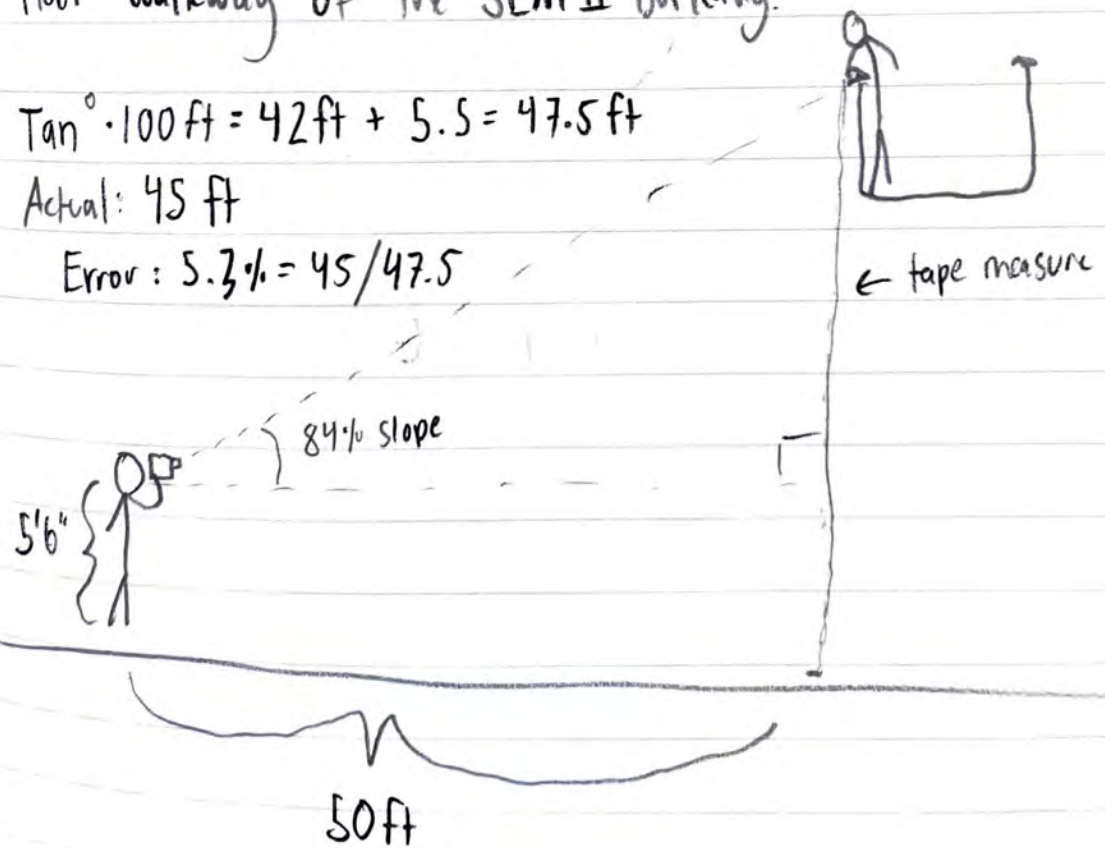 walkway of the SEM II building.
Tan° · 100 ft = 42 ft + 5.5 = 47.5 ft
Actual: 45 ft
Error: 5.3% = 45/47.5
← tape measure
84% slope
5'6"
50 ft